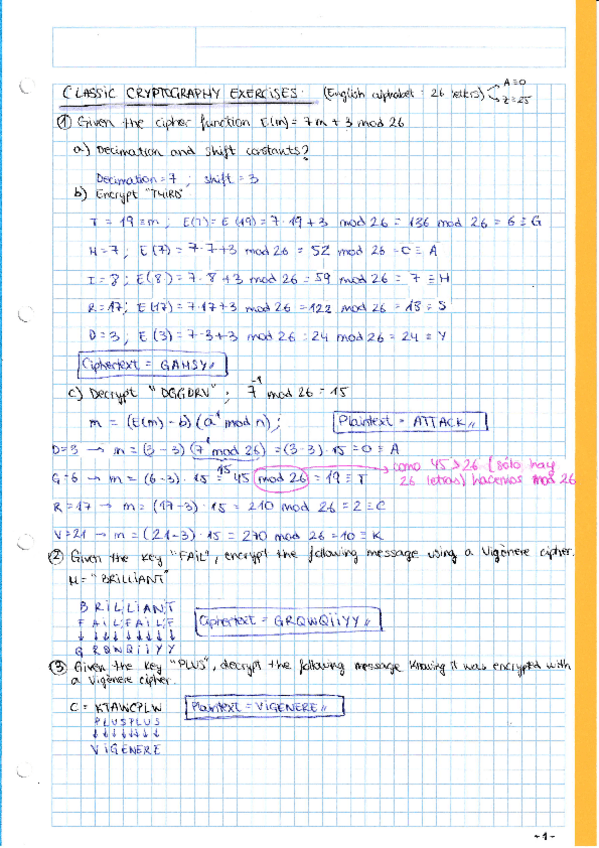 CLASSIC CRYPTOGRAPHY EXERCISES. (English alphabet: 26 letters) A≡0 Z≡25
① Given the cipher function E(m) = 7m + 3 mod 26
a) Decimation and shift constants?
Decimation = 7 ; shift = 3
b) Encrypt "THIRD"
T = 19 ≡ m ; E(T) = E(19) = 7·19+3 mod 26 = 136 mod 26 = 6 ≡ G
H = 7 ; E(7) = 7·7+3 mod 26 = 52 mod 26 = C ≡ A
I = 8 ; E(8) = 7·8+3 mod 26 = 59 mod 26 = 7 ≡ H
R = 17 ; E(17) = 7·17+3 mod 26 = 122 mod 26 = 18 ≡ S
D = 3 ; E(3) = 7·3+3 mod 26 = 24 mod 26 = 24 ≡ Y
Ciphertext = GAHSY//
c) Decrypt "DGGDRV" ; 7⁻¹ mod 26 = 15
m = (E(m) - b)(a⁻¹ mod n) ; Plaintext = ATTACK//
D=3 → m = (3-3)(7⁻¹ mod 26) = (3-3)·15 = 0 ≡ A
15
G=6 → m = (6-3)·15 = 45 mod 26 = 19 ≡ T
como 45 > 26 (sólo hay
26 letras) hacemos mod 26
R=17 → m = (17-3)·15 = 210 mod 26 = 2 ≡ C
V=21 → m = (21-3)·15 = 270 mod 26 = 10 ≡ K
② Given the key "FAIL", encrypt the following message using a Vigènere cipher.
M = "BRILLIANT"
B R I L L I A N T
F A I L F A I L F
↓ ↓ ↓ ↓ ↓ ↓ ↓ ↓ ↓
G R Q W Q I I Y Y
Ciphertext = GRQWQIIYY//
③ Given the key "PLUS", decrypt the following message knowing it was encrypted with
a Vigènere cipher.
C = KTAWCPLW Plaintext = VIGENERE//
PLUSPLUS
↓ ↓ ↓ ↓ ↓ ↓ ↓ ↓
VIGENERE
-1-